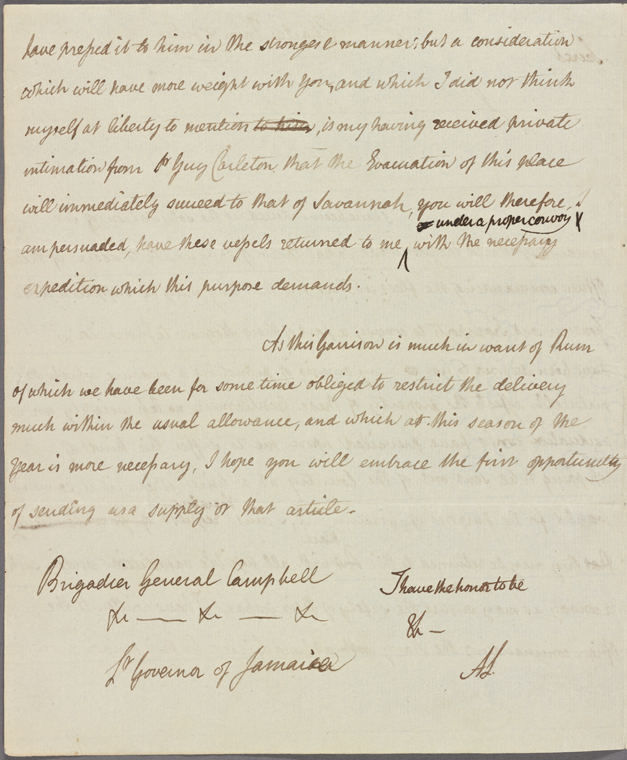 have pressed it to him in the strongest manner; but a consideration
which will have more weight with you, and which I did not think
myself at liberty to mention to him, is my having received private
intimation from Sr Guy Carleton that the Evacuation of this place
will immediately succeed to that of Savannah, you will therefore, I
under a proper convoy
am persuaded, have these vessels returned to me, with the necessary
expedition which this purpose demands.
As this Garrison is much in want of Rum
of which we have been for some time obliged to restrict the delivery
much within the usual allowance, and which at this season of the
Year is more necessary, I hope you will embrace the first opportunity
of sending us a supply of that article.
Brigadier General Campbell
I have the honor to be
&c — &c — &c
&c —
Lt Governor of Jamaica
AL